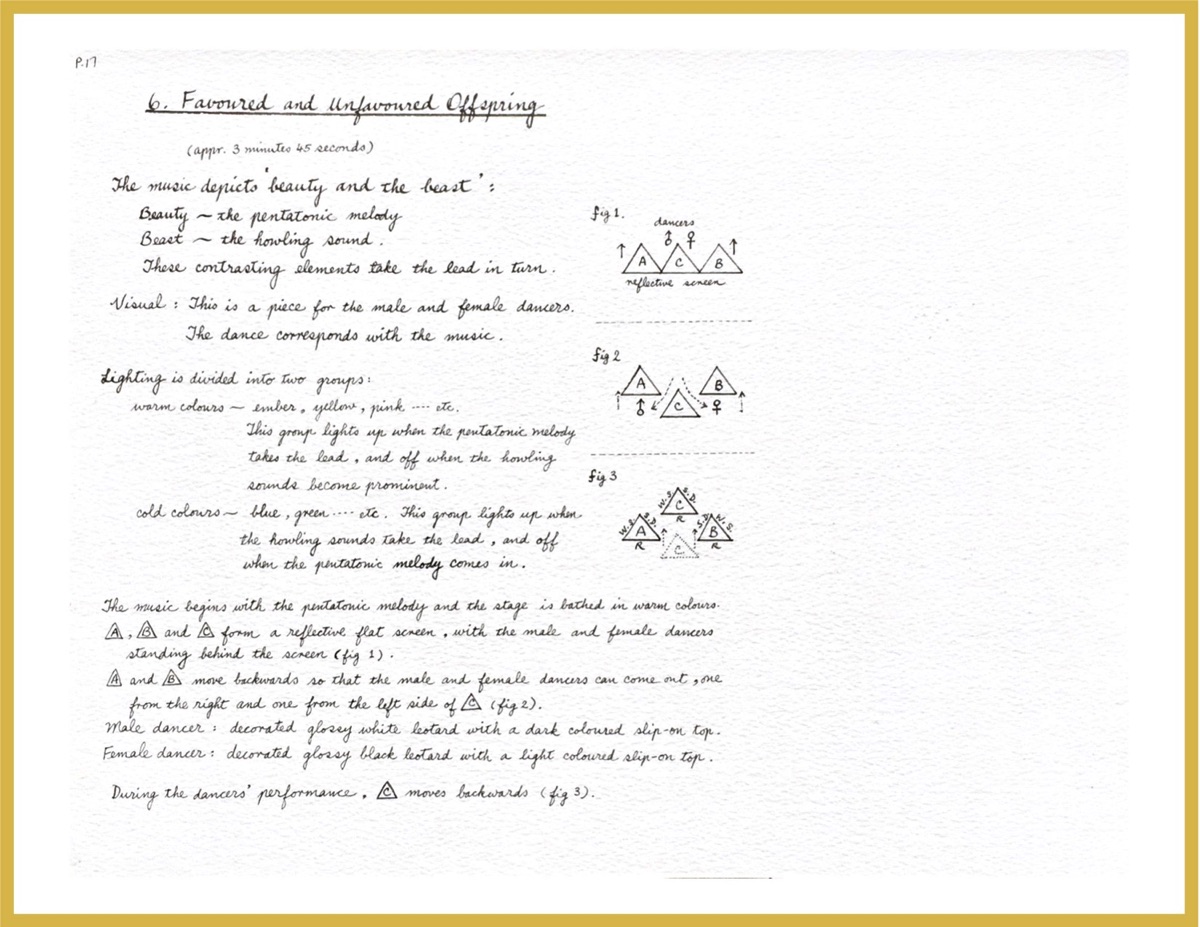 P.17
6. Favoured and Unfavoured Offspring
(appr. 3 minutes 45 seconds)
The music depicts 'beauty and the beast':
Beauty ~ the pentatonic melody
Beast ~ the howling sound.
These contrasting elements take the lead in turn.
Visual: This is a piece for the male and female dancers.
The dance corresponds with the music.
Lighting is divided into two groups:
warm colours ~ ember, yellow, pink .... etc.
This group lights up when the pentatonic melody
takes the lead, and off when the howling
sounds become prominent.
cold colours ~ blue, green .... etc. This group lights up when
the howling sounds take the lead, and off
when the pentatonic melody comes in.
fig 1.
dancers
♂ ♀
A C B
reflective screen
fig 2
A B
♂ C ♀
fig 3
W.S. C S.D.
R
W.S. A S.D. S.D. B W.S.
R C R
The music begins with the pentatonic melody and the stage is bathed in warm colours.
A, B and C form a reflective flat screen, with the male and female dancers
standing behind the screen (fig 1).
A and B move backwards so that the male and female dancers can come out, one
from the right and one from the left side of C (fig 2).
Male dancer: decorated glossy white leotard with a dark coloured slip-on top.
Female dancer: decorated glossy black leotard with a light coloured slip-on top.
During the dancers' performance, C moves backwards (fig 3).